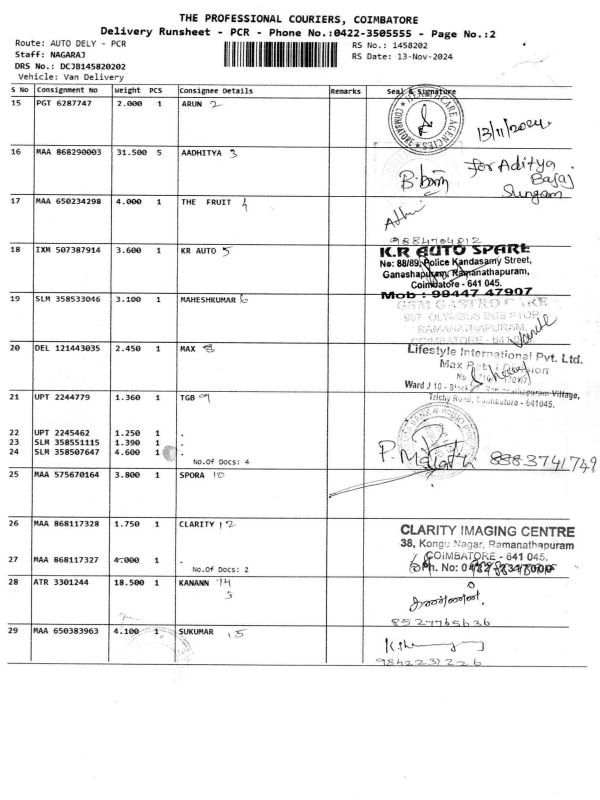 THE PROFESSIONAL COURIERS, COIMBATORE
Delivery Runsheet - PCR - Phone No.:0422-3505555 - Page No.:2
Route: AUTO DELY - PCR RS No.: 1458202
Staff: NAGARAJ RS Date: 13-Nov-2024
DRS No.: DCJB145820202
Vehicle: Van Delivery
S No Consignment No Weight PCS Consignee Details Remarks Seal & Signature
15 PGT 6287747 2.000 1 ARUN 2
COIMBATORE
13/11/2024
16 MAA 868290003 31.500 5 AADHITYA 3
for Aditya
Bajaj
Sungam
17 MAA 650234298 4.000 1 THE FRUIT 4
9884704812
18 IXM 507387914 3.600 1 KR AUTO 5
K.R AUTO SPARE
No: 88/89, Police Kandasamy Street,
Ganeshapuram, Ramanathapuram,
Coimbatore - 641 045.
Mob : 99447 47907
19 SLM 358533046 3.100 1 MAHESHKUMAR 6
GASTRO CARE
OLYMPUS BUS STOP
RAMANATHAPURAM,
COIMBATORE - 641
20 DEL 121443035 2.450 1 MAX 8
Lifestyle International Pvt. Ltd.
Max
Ward J 10 - Block Village,
Trichy Road, Coimbatore - 641045.
21 UPT 2244779 1.360 1 TGB 9
22 UPT 2245462 1.250 1 .
23 SLM 358551115 1.390 1 .
24 SLM 358507647 4.600 1 .
No.Of Docs: 4
P. Malathi 8883741749
25 MAA 575670164 3.800 1 SPORA 10
26 MAA 868117328 1.750 1 CLARITY 12
CLARITY IMAGING CENTRE
38, Kongu Nagar, Ramanathapuram
COIMBATORE - 641 045.
Ph. No: 0422
27 MAA 868117327 4.000 1 .
No.Of Docs: 2
28 ATR 3301244 18.500 1 KANANN 14
3
8527765636
29 MAA 650383963 4.100 1 SUKUMAR 15
9842231226